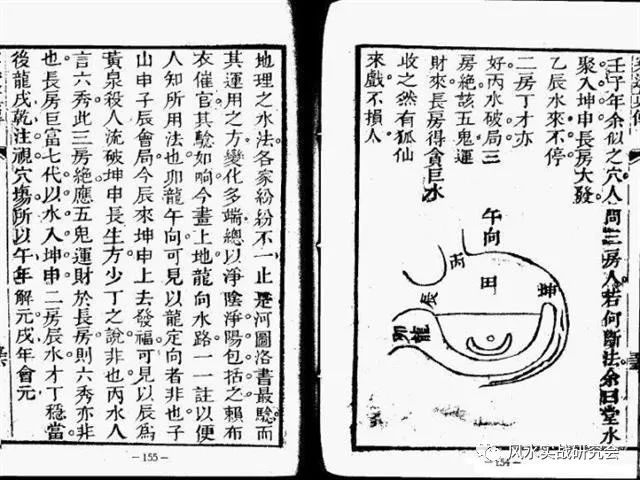 壬子年余似之穴人問三房人若何斷法余曰堂水
聚入坤申長房大發
乙辰水來不停
二房丁才亦
好丙水破局三
房絶該五鬼運
財來長房得貪巨水
收之然有狐仙
來戲不損人
午向
丙
田
坤
辰
卯龍
-154-
地理之水法各家紛紛不一止是河圖洛書最驗而
其運用之方變化多端總以淨陰淨陽包括之賴布
衣催官其驗如响今畫上地龍向水路一一註以便
人知所用法也卯龍午向可見以龍定向者非也子
山申子辰會局今辰來坤申上去發福可見以辰為
黃泉殺人流破坤申長生方少丁之說非也丙水人
言六秀此三房絶應五鬼運財於長房則六秀亦非
也長房巨富七代以水入坤申二房辰水才丁穩當
後龍戌乾注視穴塲所以午年解元戌年會元
-155-
风水实战研究会